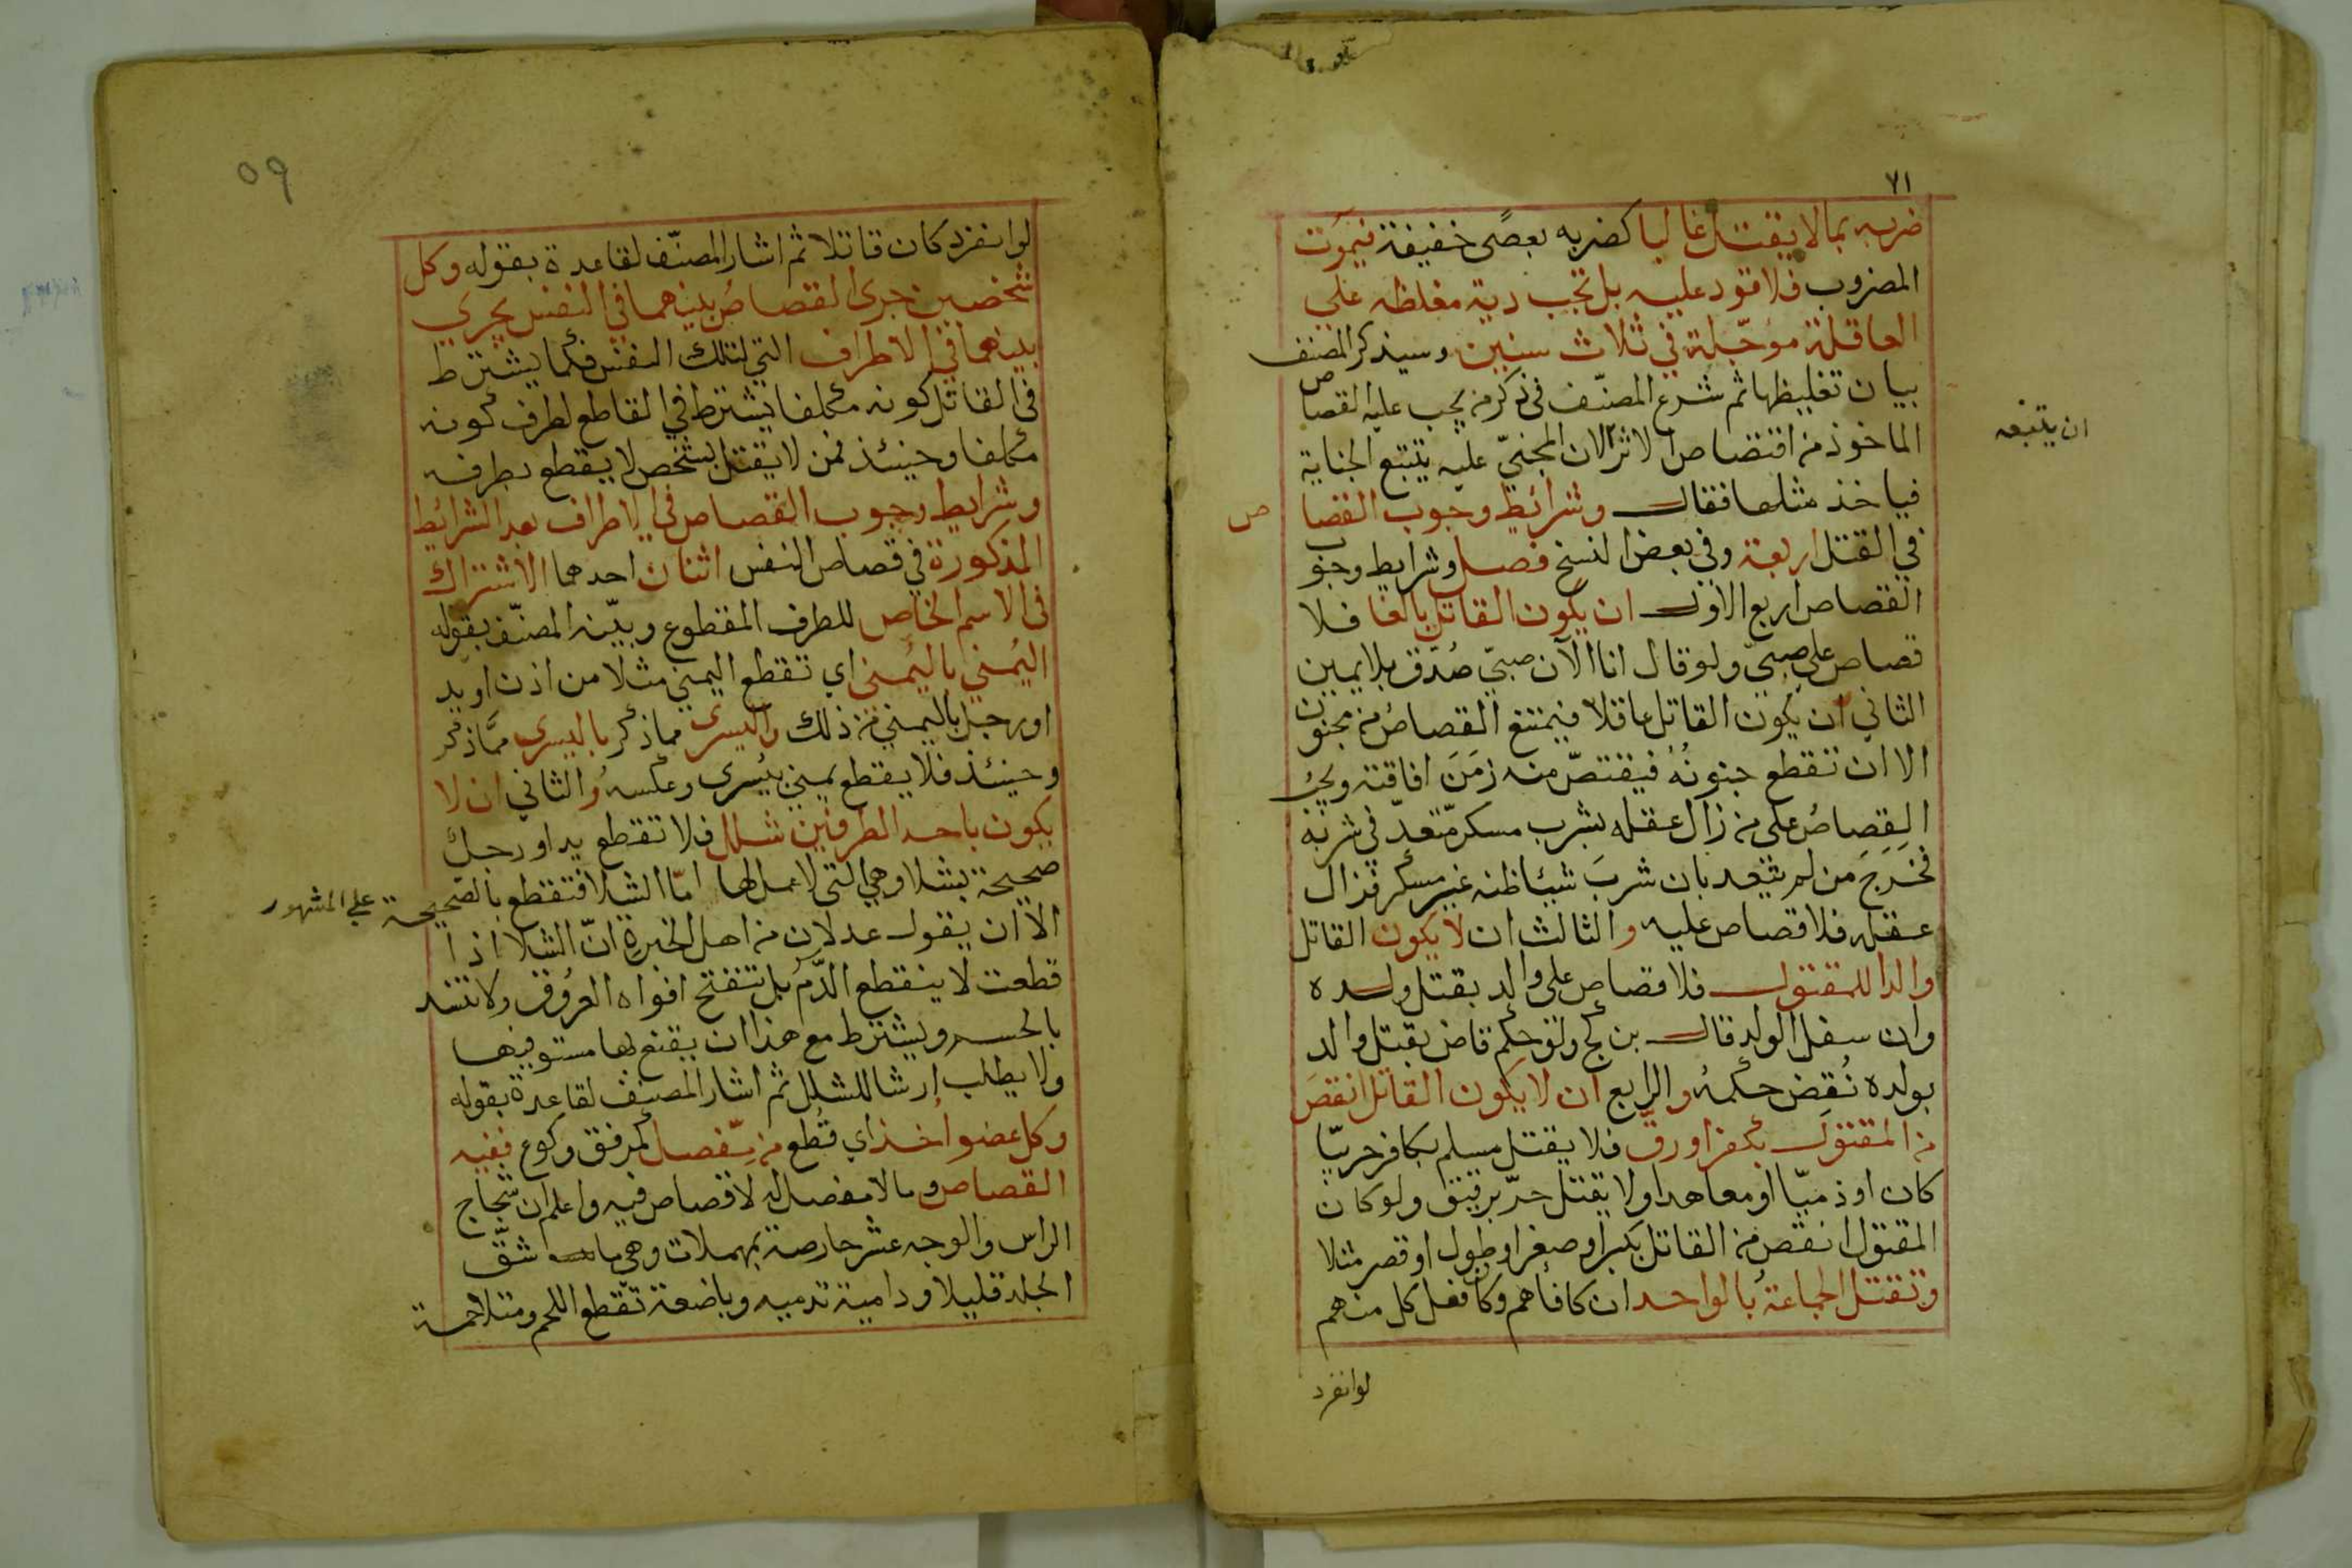 ٧١
ضربه بما لا يقتل غالبا كضربه بعصًى خفيفة فيموت
المضروب فلا قود عليه بل تجب دية مغلظه على
العاقلة مؤجّلة في ثلاث سنين وسيذكر المصنف
بيان تغليظها ثم شرع المصنّف في ذكر من يجب عليه القصاص
الماخوذ من اقتصاص الاثر لان المجنيّ عليه يتتبع الجناية
ان يتبعه
فياخذ مثلها فقال وشرائط وجوب القصاص
في القتل اربعة وفي بعض النسخ فصل وشرايط وجوب
القصاص اربع الاول ان يكون القاتل بالغا فلا
قصاص على صبيّ ولو قال انا الآن صبيّ صُدّق بلا يمين
الثاني ان يكون القاتل عاقلا فيمتنع القصاص من مجنون
الا ان تقطع جنونُهُ فيقتصّ منه زمَنَ افاقته ويجبُ
القِصاصُ على من زال عقله بشرب مسكر متعدّ في شربه
فخَرَجَ من لم يتعد بان شربَ شيئا ظنه غير مسكر فزال
عقله فلا قصاص عليه والثالث ان لا يكون القاتل
والدا للمقتول فلا قصاص على والد بقتل ولده
وان سفل الولد قال بن كج ولو حكم قاض بقتل والد
بولده نُقِض حكمهُ والرابع ان لا يكون القاتل انقصَ
من المقتول بكفر او رقّ فلا يقتل مسلم بكافر حربيّا
كان او ذميّا او معاهدا ولا يقتل حرّ برقيق ولو كان
المقتول انقص من القاتل بكبر او صغر او طول او قصر مثلا
وتقتل الجماعةُ بالواحد ان كافاهم وكان فعل كل منهم
لو انفرد
٥٩
لو انفرد كان قاتلا ثم اشار المصنّف لقاعدة بقوله وكل
شخصين جرى القصاصُ بينهما في النفس يجري
بينهما في الاطراف التي لتلك النفس فكما يشترط
في القاتل كونه مكلفا يشترط في القاطع لطرف كونه
مكلفا وحينئذ فمن لا يقتل بشخص لا يقطع بطرفه
وشرايط وجوب القصاص في الاطراف بعد الشرائط
المذكورة في قصاص النفس اثنان احدهما الاشتراك
في الاسم الخاص للطرف المقطوع وبيّنه المصنّف بقوله
اليُمني باليُمني اي تقطع اليمني مثلا من اذن او يد
او رجل باليمني من ذلك واليسرى مما ذكر باليسرى ممّا ذكر
وحينئذ فلا يقطع يمني بيُسرى وعكسه والثاني ان لا
يكون باحد الطرفين شلل فلا تقطع يد او رجل
صحيحة بشلا وهي التي لا عمل لها امّا الشلا فتقطع بالصحيحة على المشهور
الا ان يقول عدلان من اهل الخبرة انّ الشلا اذا
قطعت لا ينقطع الدّم بل تنفتح افواه العروُق ولا تنسد
بالحسم ويشترط مع هذا ان يقنع بها مستوفيها
ولا يطلب ارشا للشلل ثم اشار المصنف لقاعدة بقوله
وكل عضو اُخذ اي قطع من مِفصل كمرفق وكوع ففيه
القصاص وما لا مفصل له لا قصاص فيه واعلم ان شجاج
الراس والوجه عشر حارصة بمهملات وهي ما شقّ
الجلد قليلا ودامية تدميه وباضعة تقطع اللحم ومتلاحمة